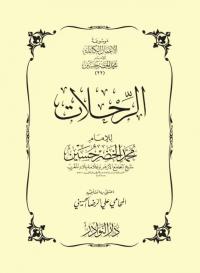 موسوعة
الأعمال الكاملة
للإمام
محمد الخضر حسين
(٢٢)
الرحلات
للإمام
محمد الخضر حسين
شيخ الجامع الأزهر وعلامة بلاد المغرب
اعتنى به
المحامي علي الرضا الحسيني
دار النوادر